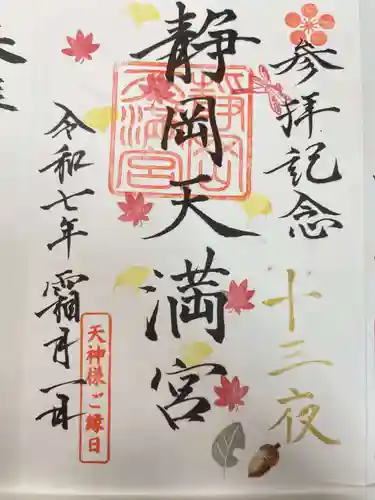 参拝記念
十三夜
静岡天満宮
静岡天満宮
天神様ご縁日
令和七年霜月一日